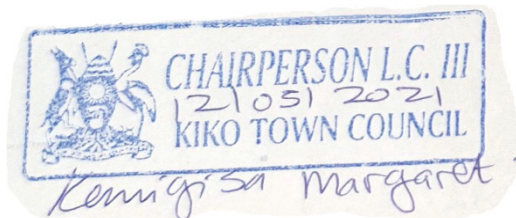 CHAIRPERSON L.C. III
12/05/2021
KIKO TOWN COUNCIL
Kemigisa Margaret